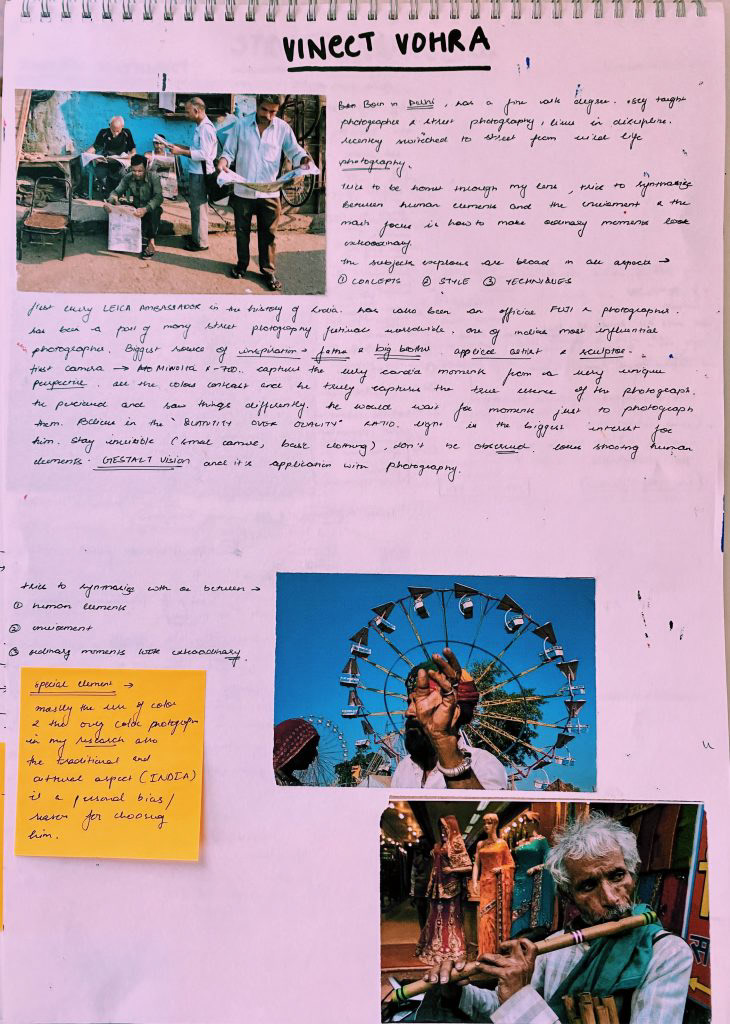 VINEET VOHRA
Born in Delhi, has a fine arts degree. self taught
photographer & street photography, lives in discipline.
recently switched to street from wild life
photography.
tries to be honest through my lens, tries to synthasize
between human elements and the enviroment & the
main focus is how to make ordinary moments look
extraordinary.
the subjects explores are broad in all aspects →
① CONCEPTS ② STYLE ③ TECHNIQUES
first every LEICA AMBASSADOR in the history of India. has also been an official FUJI X photographer.
has been a part of many street photography festivals worldwide. one of indias most influential
photographer. Biggest source of inspiration → father & big brother. applied artist & sculptor.
first camera → MINOLTA X-700. capture the very candid moments from a very unique
perspective. all the colors contrast and he truly captures the true essence of the photograph.
he percieved and saw things differently. he would wait for moments just to photograph
them. Believes in the "QUANTITY OVER QUALITY" RATIO. light is the biggest interest for
him. stay invisible (small camera, basic clothing), don't be observed. loves shooting human
elements. GESTALT Vision and it's application with photography.
tries to synthasize with or between →
① human elements
② enviroment
③ ordinary moments with extraordinary.
special element →
mostly the use of color
& the only color photographer
in my research also
the traditional and
cultural aspect (INDIA)
is a personal bias/
reason for choosing
him.